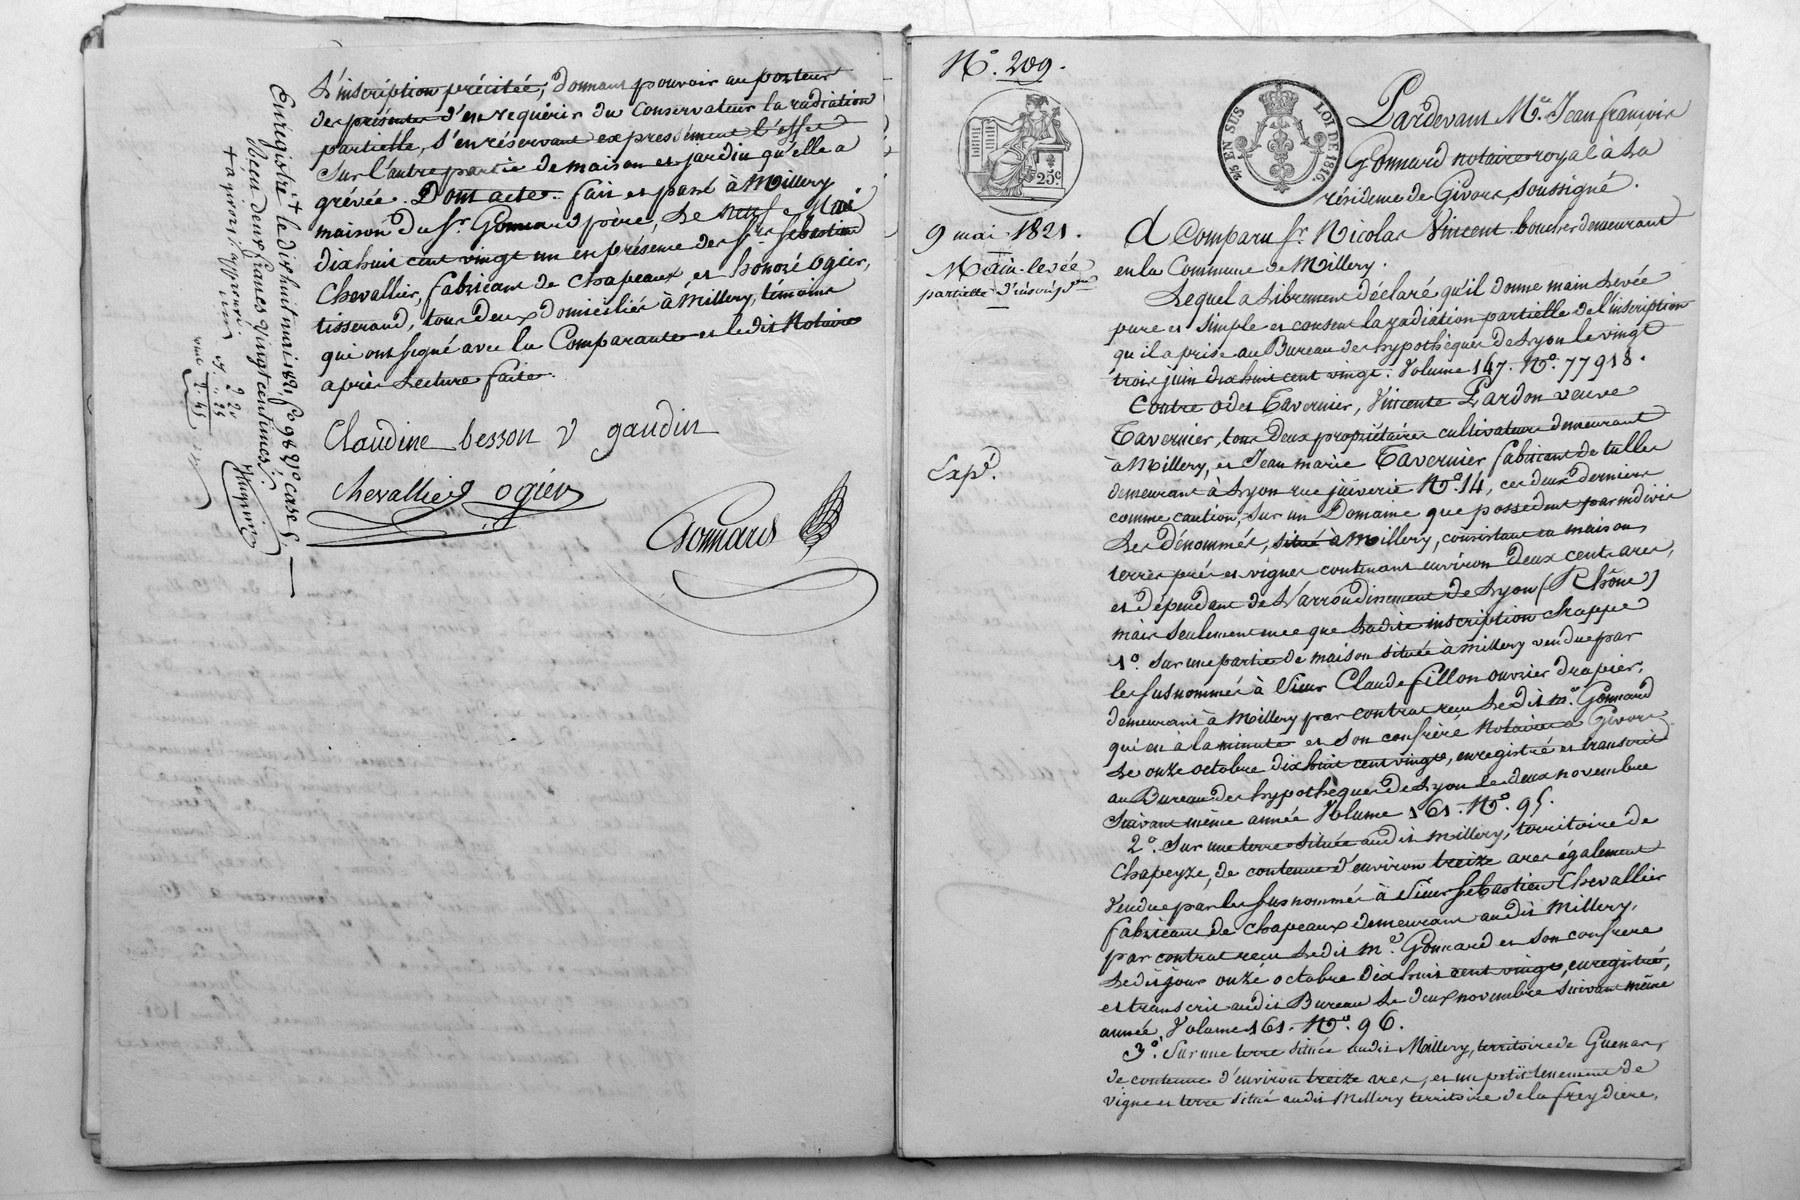 L'inscription précitée, donnant pouvoir au porteur
des présentes d'en requérir du Conservateur la radiation
partielle, s'en réservant expressément l'effet
sur l'autre partie de maison et jardin qu'elle a
grévée. Dont acte. fait et passé à Millery
maison du Sr. Gonnard père, Le neuf Mai
dixhuit cent vingt un en présence des Srs Sébastien
Chevallier, fabricant de Chapeaux, et honoré Ogier,
tisserand, tous deux domiciliés à Millery, témoins
qui ont signé avec la Comparante et ledit Notaire
après Lecture faite.
Claudine besson v gaudin
Chevallier ogier
Gonnard
Enregistré + le dixhuit mai 1821, fo 98 Vo case 5.
reçu deux francs vingt centimes.
+ à givors
2 20
N°. 209.
25 EN SUS LOI DE 1816
25c
9 mai 1821.
Main-levée
partielle d'inscripon
Expé.
Pardevant Me. Jean françois
Gonnard notaire royal à la
résidence de Givors, soussigné.
A Comparu Sr. Nicolas Vincent boucher demeurant
en la Commune de Millery.
Lequel a librement déclaré qu'il donne main levée
pure et simple et consent la radiation partielle de l'inscription
qu'il a prise au Bureau des hypothèques de Lyon le vingt
trois juin dixhuit cent vingt. Volume 147. N°. 77918.
Contre odet Tavernier, Vincente Pardon veuve
Tavernier, tous deux propriétaires cultivateurs demeurant
à Millery, et Jean marie Tavernier fabricant de tulles
demeurant à Lyon rue juiverie N°. 14, ces deux derniers
comme caution, sur un Domaine que possédent par indivis
Les dénommés, situé à Millery, consistant en maison,
terres prés et vignes contenant environ deux cent ares,
et dépendant de L'arrondissement de Lyon (Rhône)
mais seulement en ce que Ladite inscription frappe
1°. Sur une partie de maison située à Millery vendue par
les susnommés à Sieur Claude fillon ouvrier drapier,
demeurant à Millery par contrat reçu Ledit Me. Gonnard
qui en a la minute et son confrère Notaires à Givors
Le onze octobre dixhuit cent vingt, enregistré et transcrit
au Bureau des hypothèques de Lyon le deux novembre
Suivant même année Volume 161. N°. 95.
2°. Sur une terre située audit Millery, territoire de
Chapeyze, de contenue d'environ treize ares également
Vendue par les susnommés à Sieur Sébastien Chevallier
fabricant de Chapeaux demeurant audit Millery,
par contrat reçu Ledit Me. Gonnard et son confrère
Ledit jour onze octobre dixhuit cent vingt, enregistré,
et transcrit audit Bureau Le deux novembre suivant même
année, Volume 161. N°. 96.
3°. Sur une terre située audit Millery, territoire de Guenar,
de contenue d'environ treize ares, et un petit tenement de
vigne et terre situé audit Millery territoire de la freydière,